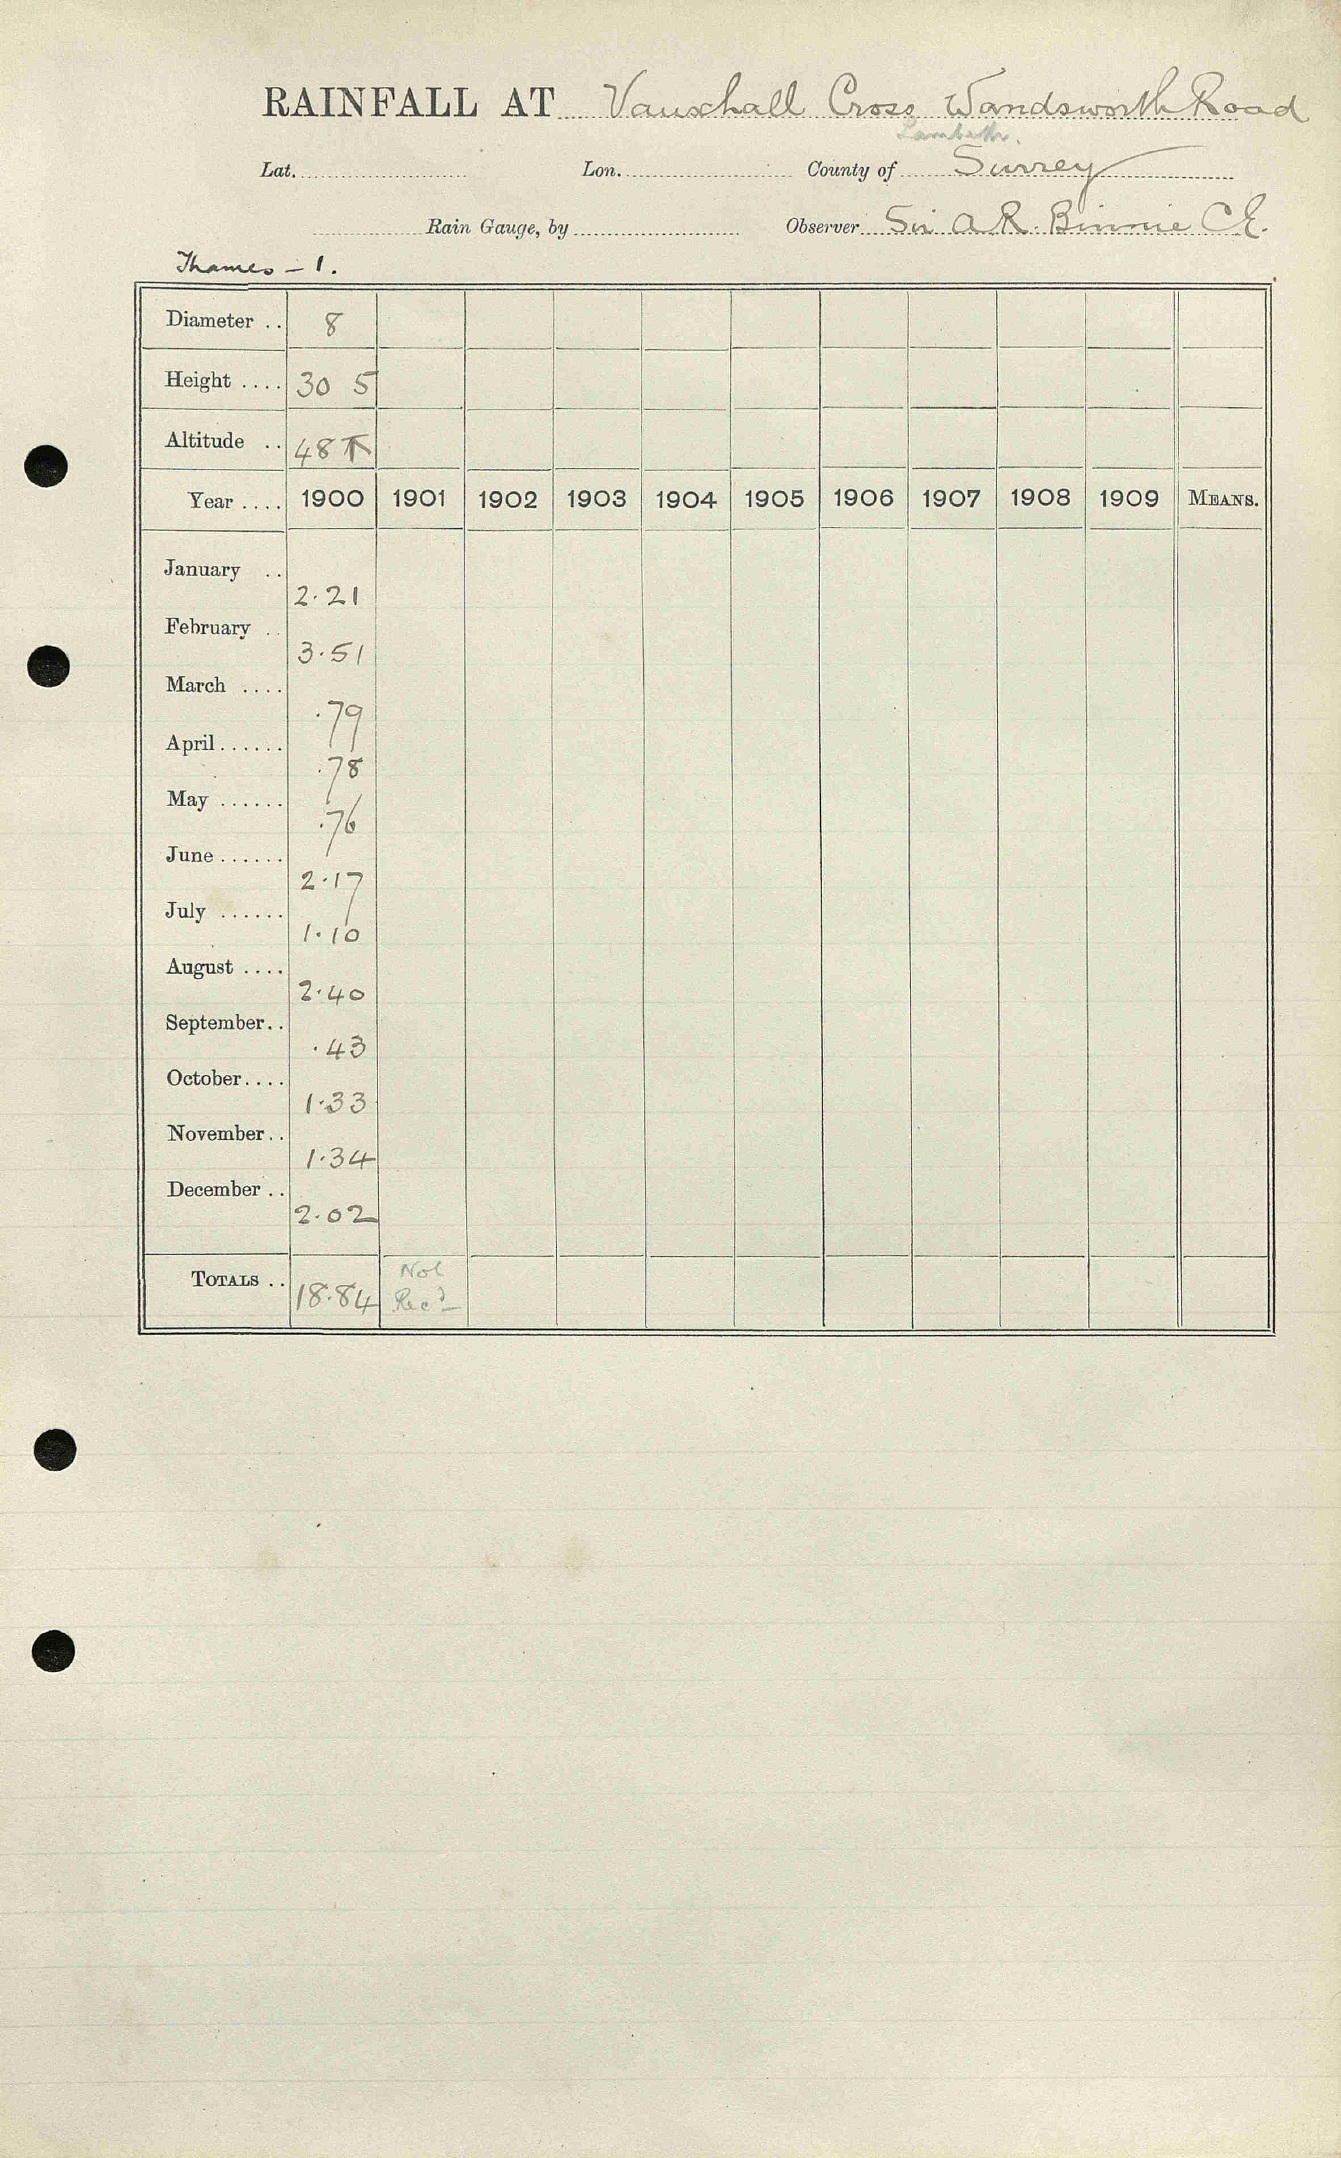 RAINFALL AT Vauxhall Cross Wandsworth Road
Lambeth.
Lat. Lon. County of Surrey
Rain Gauge, by Observer Sir A R. Binnie C E.
Thames - 1.
Diameter .. 8
Height .... 30 5
Altitude .. 48 T
Year .... 1900 1901 1902 1903 1904 1905 1906 1907 1908 1909 MEANS.
January .. 2.21
February .. 3.51
March .... .79
April ...... .78
May ...... .76
June ...... 2.17
July ...... 1.10
August .... 2.40
September .. .43
October .... 1.33
November .. 1.34
December .. 2.02
TOTALS .. 18.84 Not
Recd